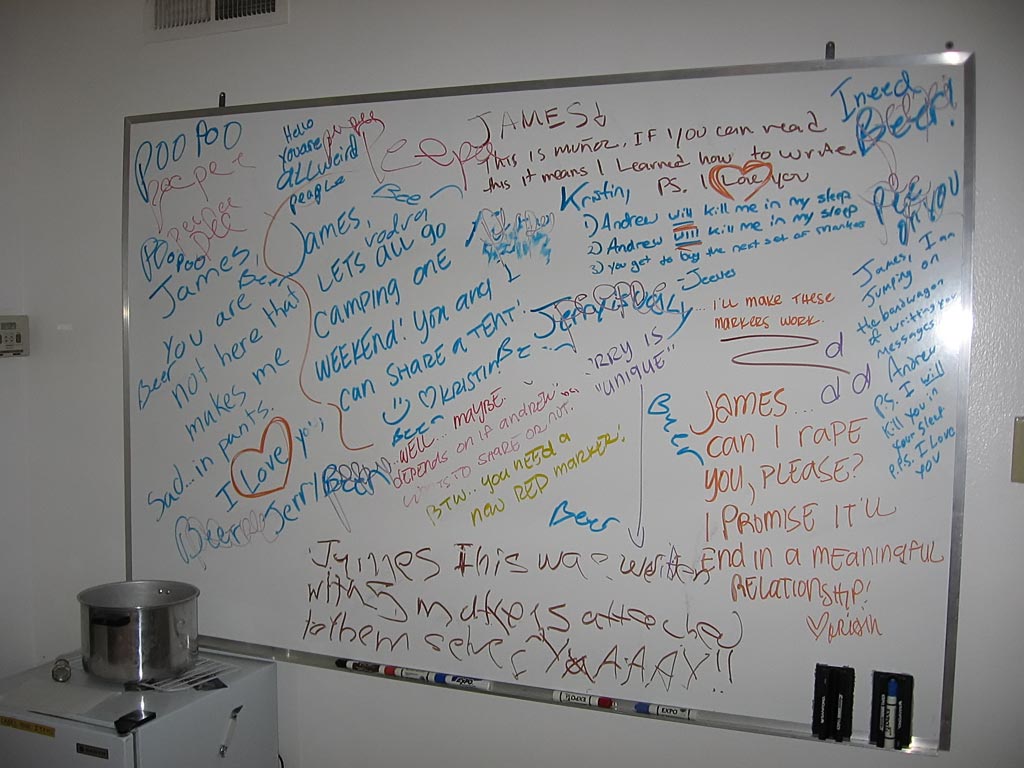 POO POO
pee pee
pee pee
pee
POO
POO POO
Hello
You are
all weird
people
JAMES
This is muñoz, IF you can read
this it means I Learned how to write
PS. I Love you
I need
Beer!
Pee
on you
James,
You are
not here that
makes me
Sad... in pants.
I Love you,
Jerry
Beer
Beer
James,
LETS all go
camping one
WEEKEND! You and I
can SHARE a TENT!
♡ KRISTIN
Kristin,
1) Andrew will kill me in my sleep
2) Andrew will kill me in my sleep
3) You get to buy the next set of markers
-Jeeves
I'll make THESE
markers WORK.
d
d d
"UNIQUE"
WELL... maybe.
depends on if andrew
TO SHARE OR NOT.
BTW... you need a
new RED marker!
Beer
Beer
Beer
James,
I am
Jumping on
the bandwagon
of writing your
messages
PS. I will
kill you in
your sleep
PPS. I Love
you
JAMES...
can I RAPE
you, PLEASE?
I PROMISE IT'LL
End in a meaningful
RELATIONSHIP!
This was written
with 5 markers attached
to them selves YAAAAY!!
EXPO
EXPO